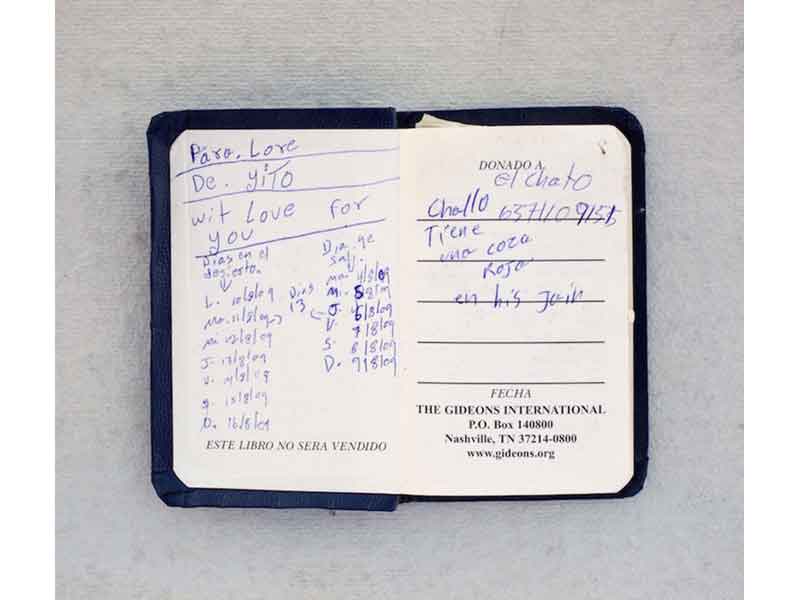 Para. Lore
De. YiTO
wit Love For
you
Dias en el
desierto.
L. 10/8/09
Ma. 11/8/09
Mi 12/8/09
J. 13/8/09
V. 14/8/09
S. 15/8/09
D. 16/8/09
Dias
13
Dia. qe
Sali.
Ma. 4/8/09
Mi. 5/8/09
J. 6/8/09
V. 7/8/09
S. 8/8/09
D. 9/8/09
ESTE LIBRO NO SERA VENDIDO
DONADO A
el chato
Challo
Tiene
una coza
Roja
en his Jair
FECHA
THE GIDEONS INTERNATIONAL
P.O. Box 140800
Nashville, TN 37214-0800
www.gideons.org